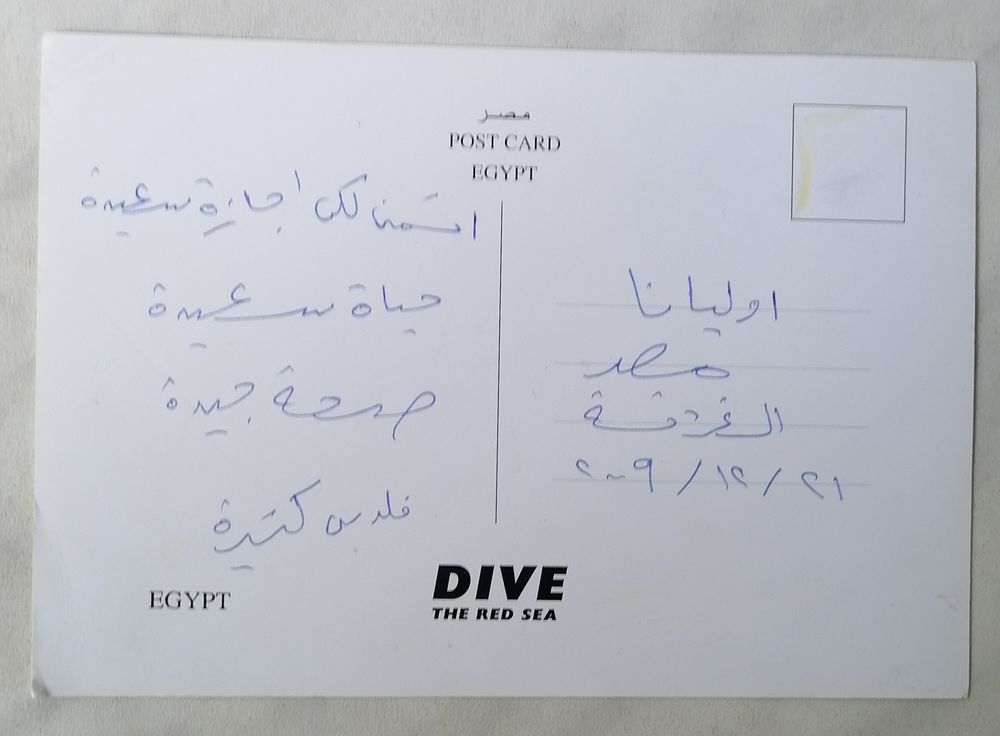 مصر
POST CARD
EGYPT
اتمنى لكى اجازة سعيدة
حياة سعيدة
صحة جيدة
فلوس كتيرة
اوليانا
مصر
الغردقة
٢١/١٢/٢٠٠٩
EGYPT
DIVE
THE RED SEA